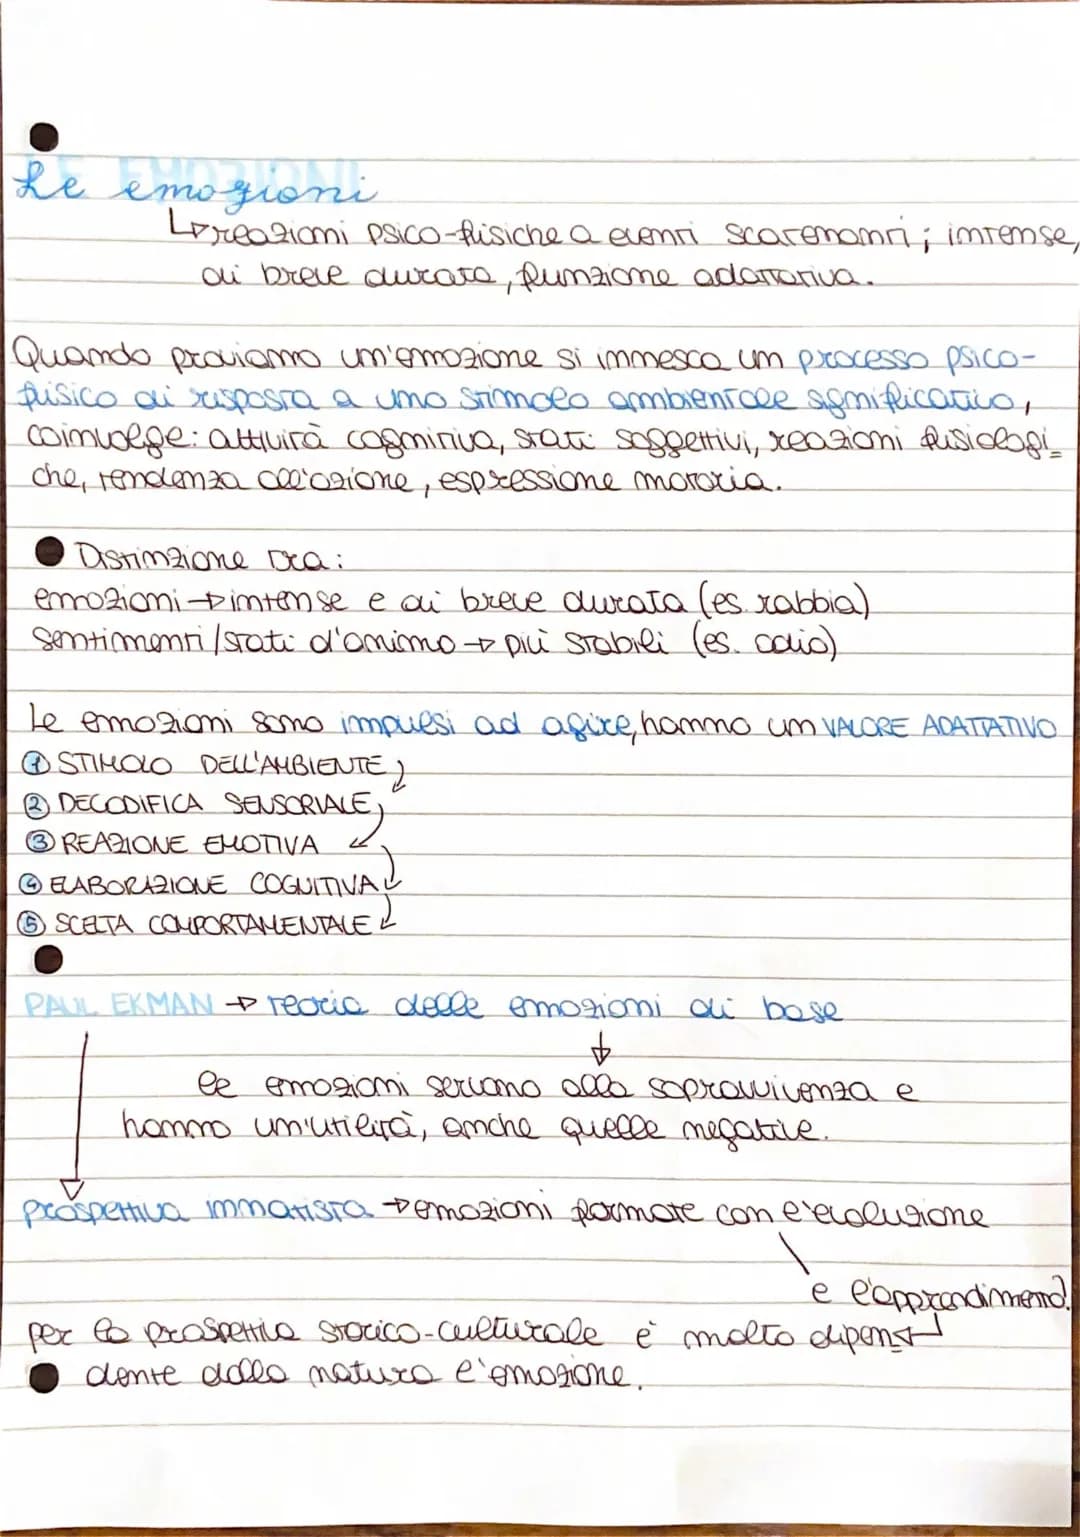 LE EMOZIONI
Le emozioni
↳ reazioni psico-fisiche a eventi scatenanti; intense,
di breve durata, funzione adattativa.
Quando proviamo un'emozione si innesca un processo psico-
fisico di risposta a uno stimolo ambientale significativo,
coinvolge: attività cognitiva, stati soggettivi, reazioni fisiologi_
che, tendenza all'azione, espressione motoria.
Distinzione tra:
emozioni → intense e di breve durata (es. rabbia)
sentimenti/stati d'animo → più stabili (es. odio)
Le emozioni sono impulsi ad agire, hanno un VALORE ADATTATIVO
① STIMOLO DELL'AMBIENTE
② DECODIFICA SENSORIALE
③ REAZIONE EMOTIVA
④ ELABORAZIONE COGNITIVA
⑤ SCELTA COMPORTAMENTALE
PAUL EKMAN → teoria delle emozioni di base
↓
le emozioni servono alla sopravvivenza e
hanno un'utilità, anche quelle negative.
prospettiva innatista → emozioni formate con l'evoluzione
e l'apprendimento.
per la prospettiva storico-culturale è molto dipen
dente dalla natura l'emozione.